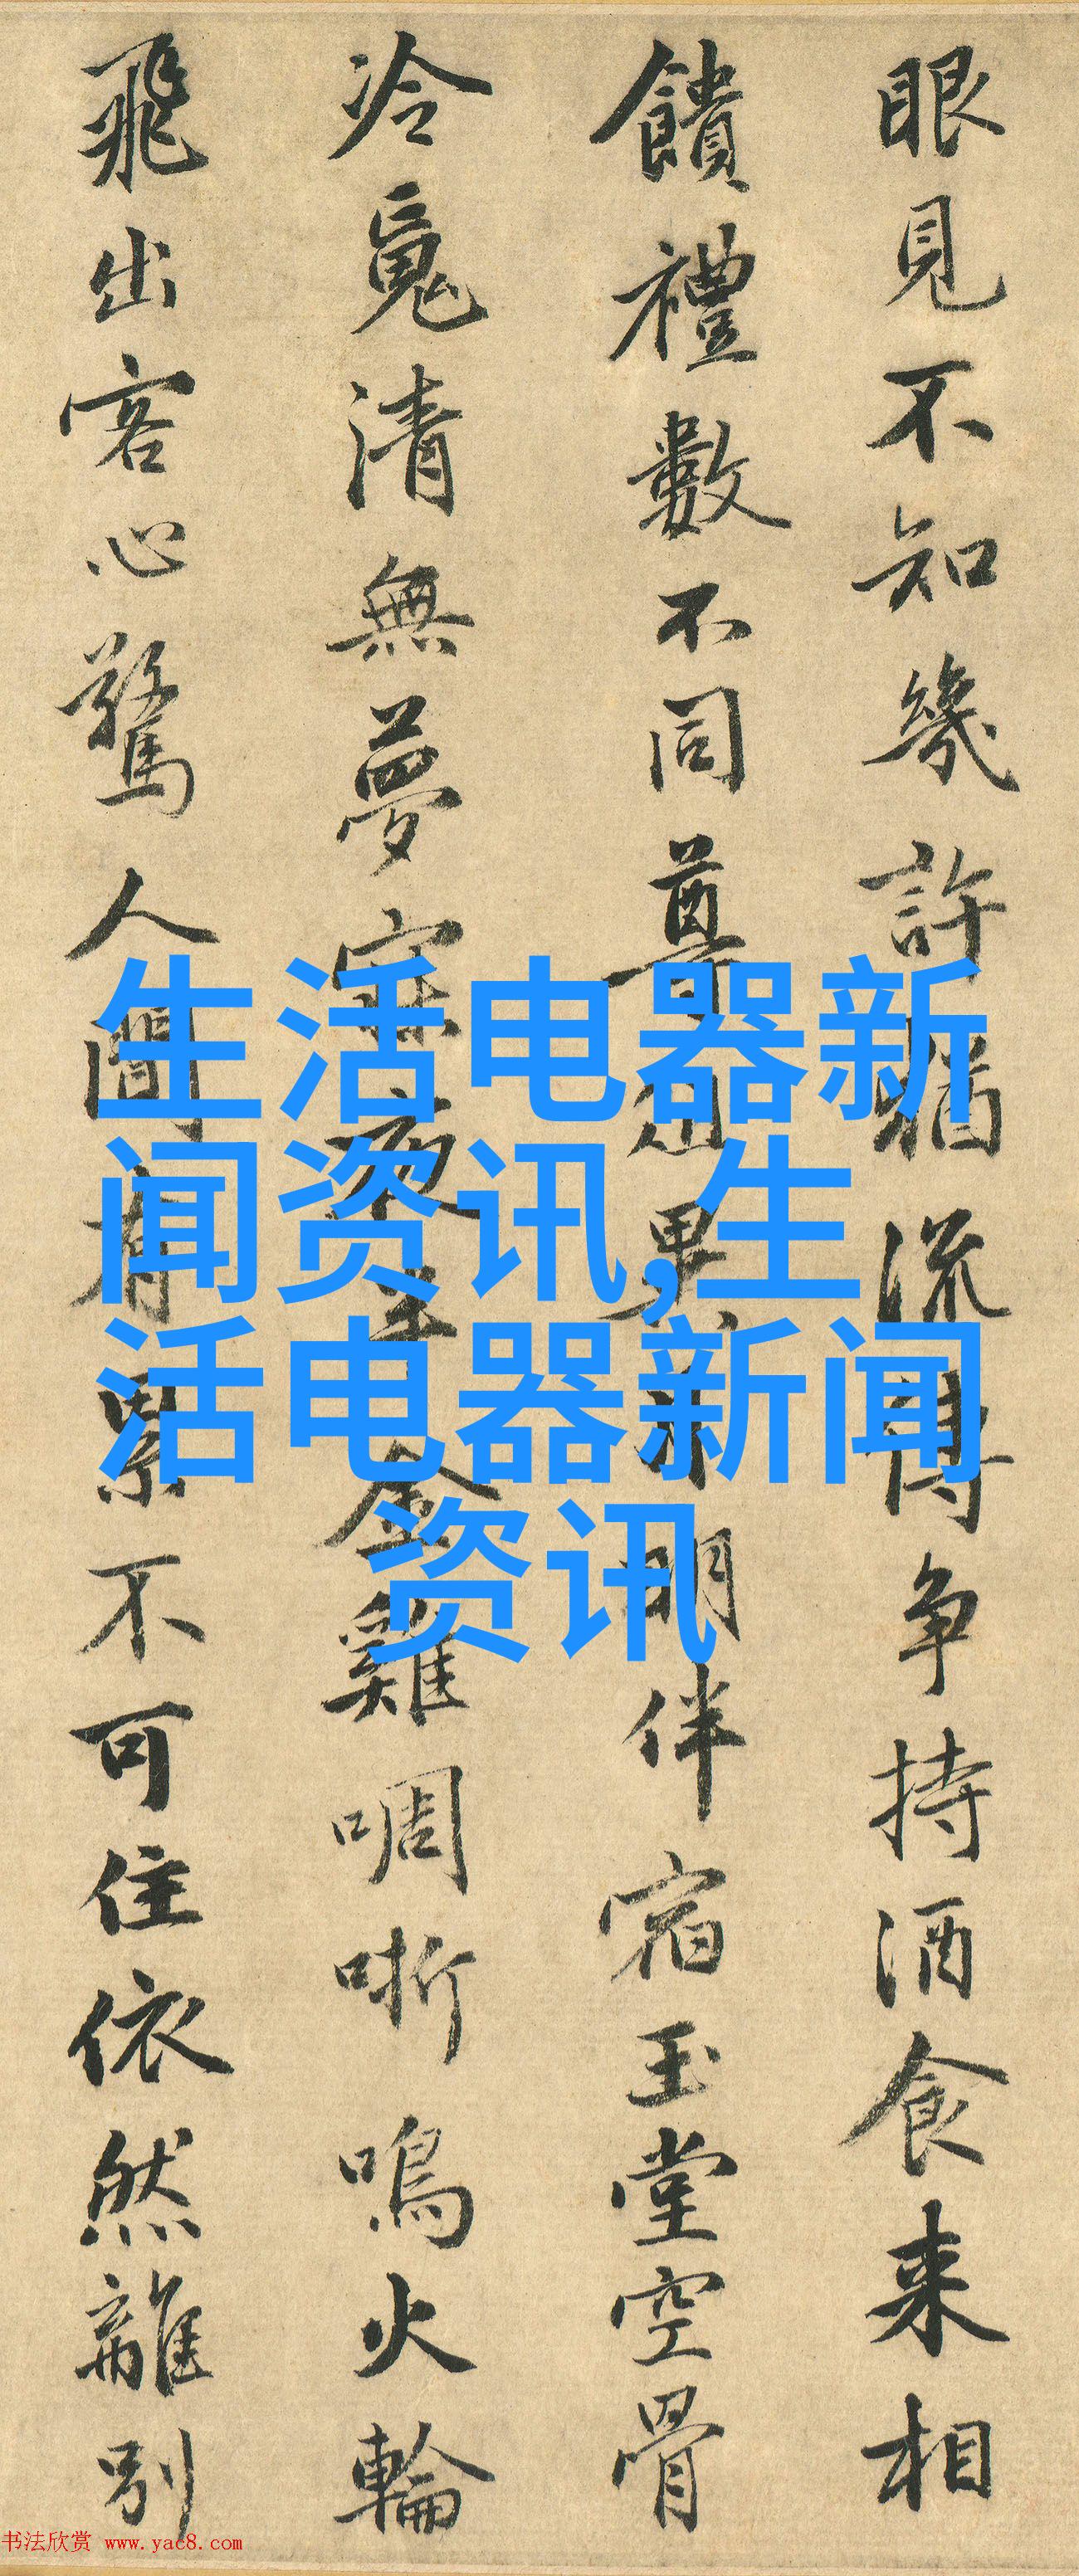 眼見不知幾許猶流傳争持酒食来相
饋禮數不同尊
明伴宿玉堂空骨
冷魂清無夢寐夜
金雞啁哳鳴火輪
飛出客心驚人間有累不可住依然離別
生活电器新
闻资讯,生
活电器新闻
资讯
书法欣赏 www.yac8.com